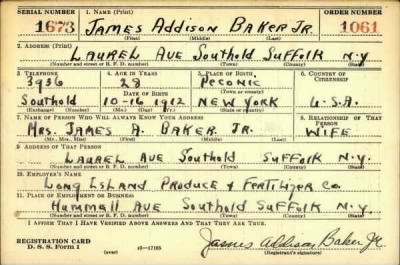 SERIAL NUMBER 1. NAME (Print) ORDER NUMBER
1673 JAMES ADDISON BAKER JR. 1061
(First) (Middle) (Last)
2. ADDRESS (Print)
LAUREL AVE Southold SUFFOLK N.Y
(Number and street or R. F. D. number) (Town) (County) (State)
3. TELEPHONE 4. AGE IN YEARS 5. PLACE OF BIRTH 6. COUNTRY OF CITIZENSHIP
3936 28 PECONIC
DATE OF BIRTH (Town or county)
Southold 10-16-1912 NEW YORK U.S.A.
(Exchange) (Mo.) (Day) (Yr.) (State or country)
7. NAME OF PERSON WHO WILL ALWAYS KNOW YOUR ADDRESS 8. RELATIONSHIP OF THAT PERSON
MRS. JAMES A. BAKER JR. WIFE
(Mr., Mrs., Miss) (First) (Middle) (Last)
9. ADDRESS OF THAT PERSON
LAUREL AVE Southold SUFFOLK N.Y.
(Number and street or R. F. D. number) (Town) (County) (State)
10. EMPLOYER'S NAME
LONG ISLAND PRODUCE & FERTILIZER CO
11. PLACE OF EMPLOYMENT OR BUSINESS
HUMMELL AVE Southold SUFFOLK N.Y.
(Number and street or R. F. D. number) (Town) (County) (State)
I AFFIRM THAT I HAVE VERIFIED ABOVE ANSWERS AND THAT THEY ARE TRUE.
REGISTRATION CARD
D. S. S. Form 1 (over) James Addison Baker Jr.
(Registrant's signature)